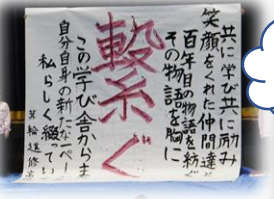 共に学び共に励み
笑顔をくれた仲間達と
百年目の物語を紡ぐ
その物語を胸に
繋ぐ
この学び舎からま
自分自身の新たな一ペー
私らしく綴ってい